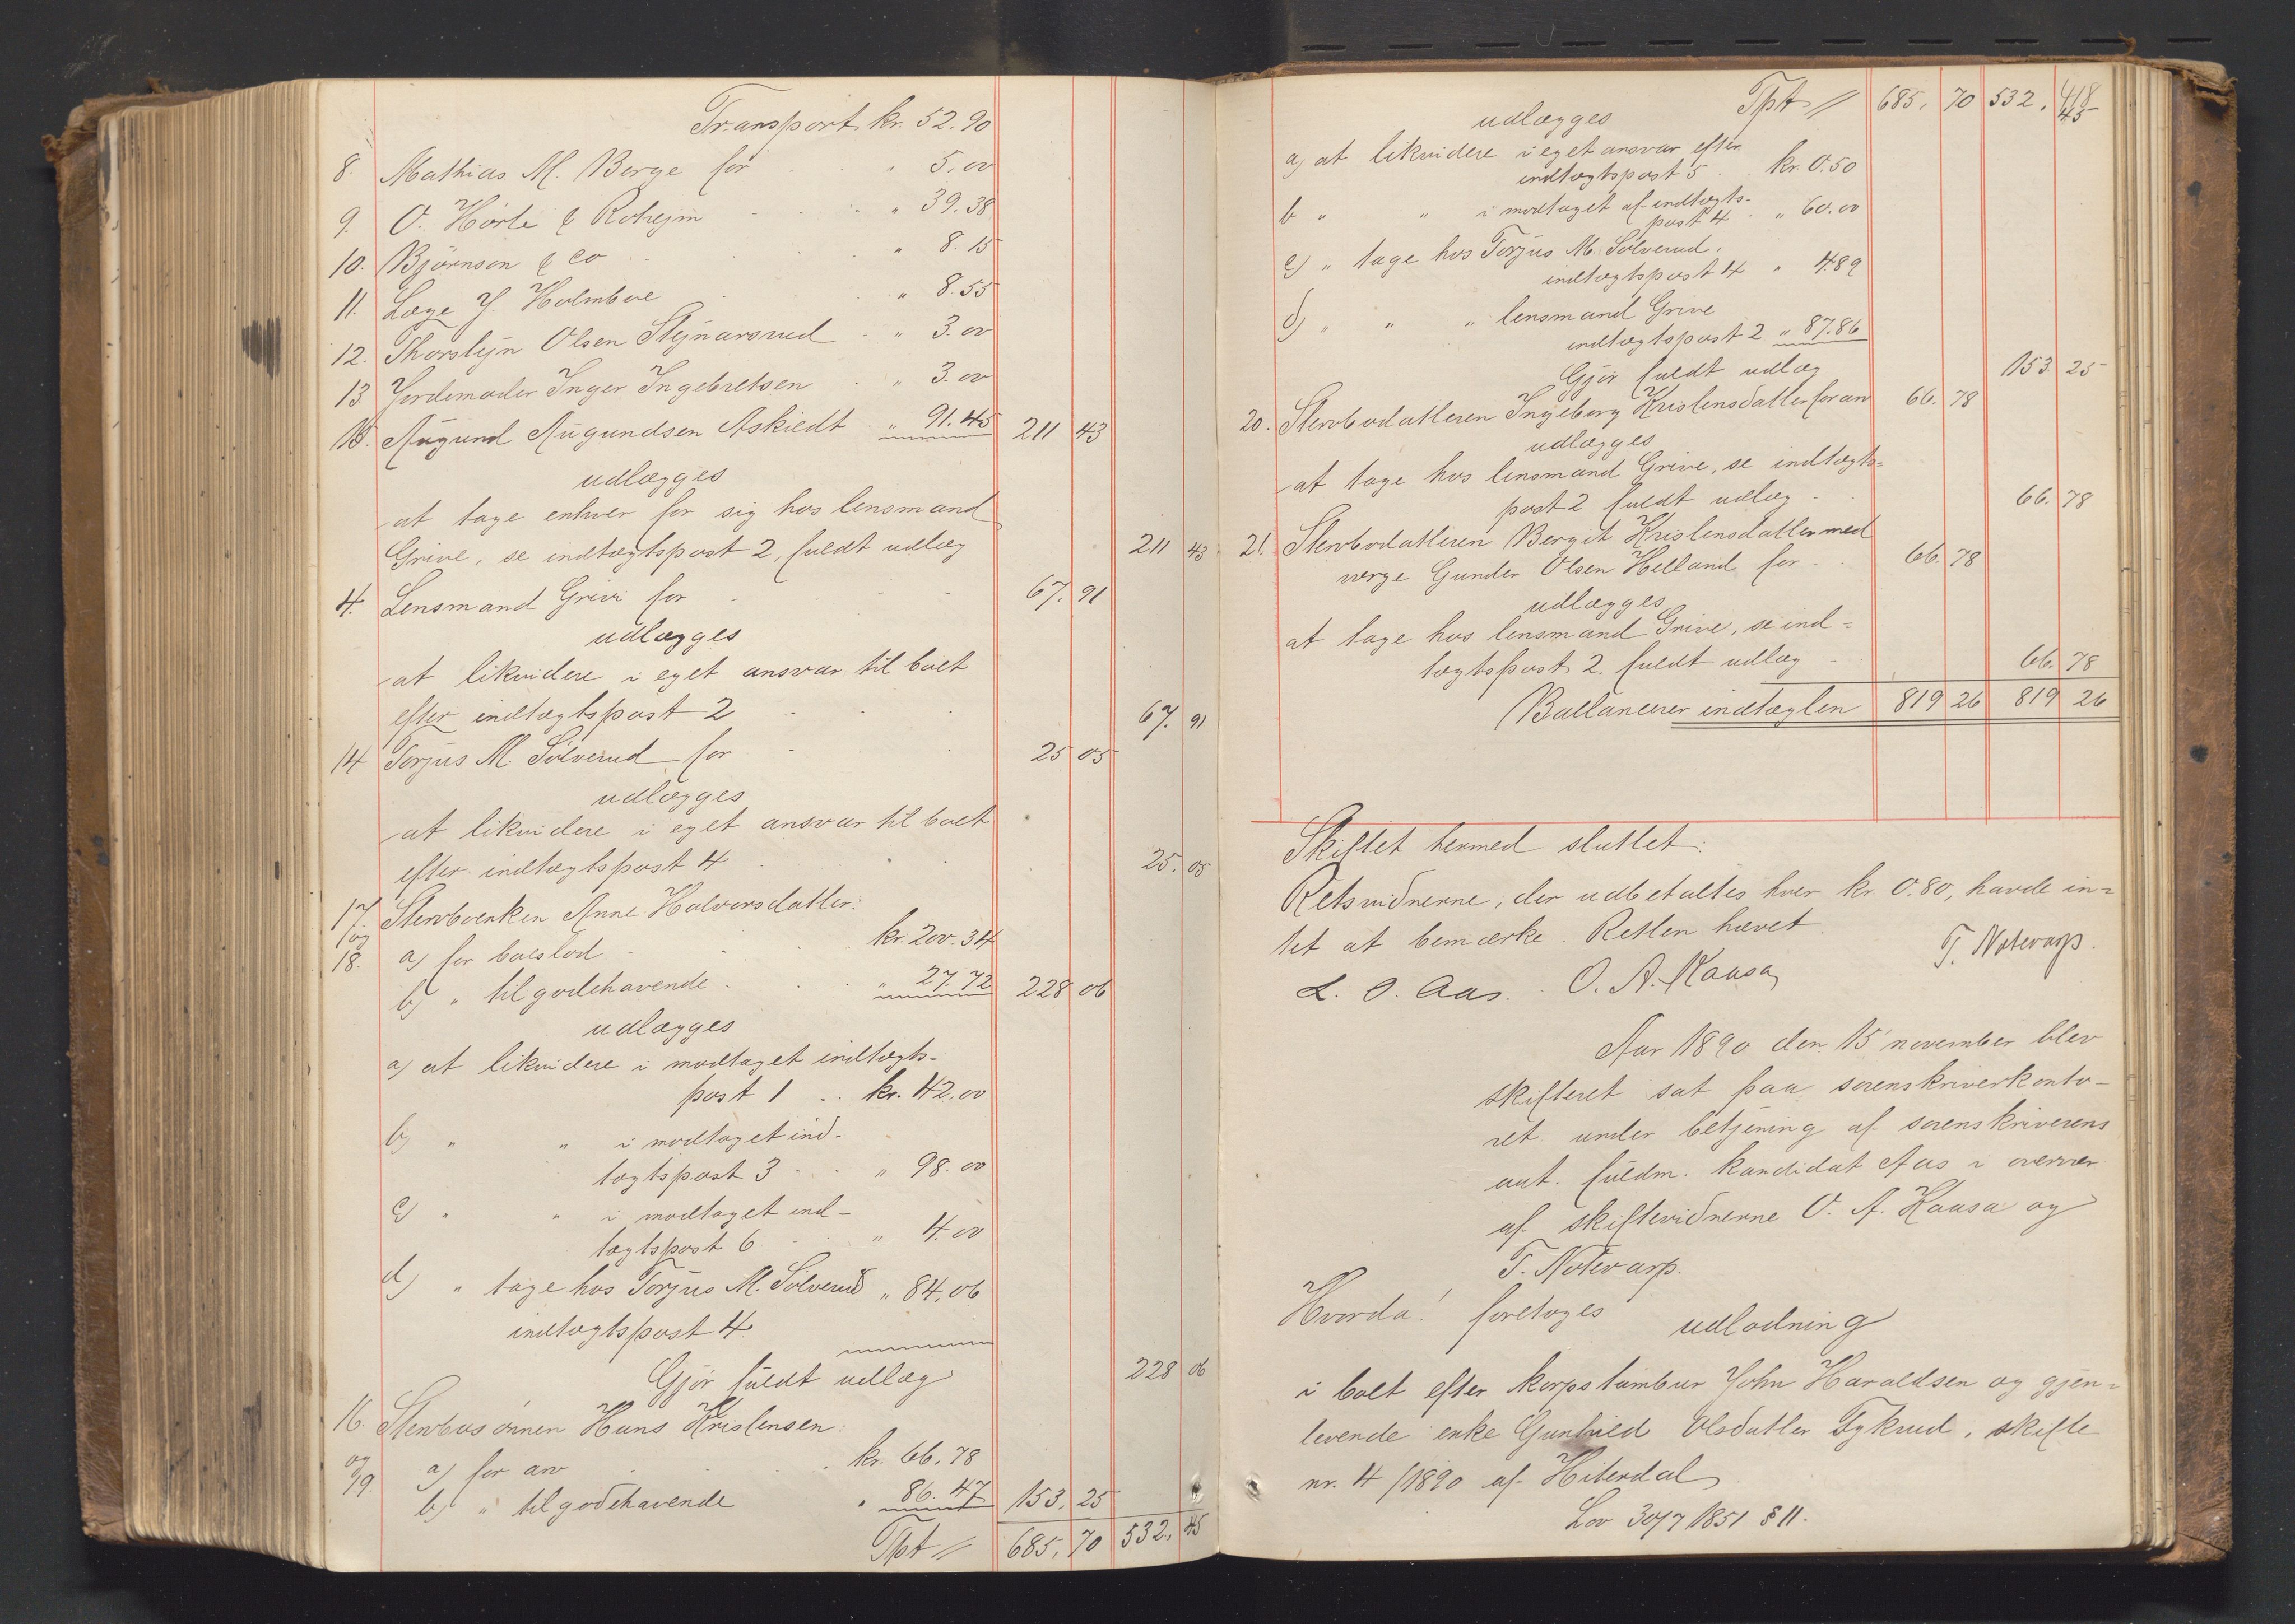 Transport kr. 52.90
8. Mathias M. Berge for " 5.00
9. O. Hörte & Rohejm " 39.38
10. Björnson & Co " 8.15
11. Læge J. Holmboe " 8.55
12. Thorstejn Olsen Stejnarsrud " 3.00
13. Jordemoder Inger Ingebretsen " 3.00
15. Augund Augundsen Askiedt " 91.45 211 43
udlægges
at tage enhver for sig hos lensmand
Grive, se indtægtspost 2, fuldt udlæg 211 43
4. Lensmand Grive for 67. 91
udlægges
at likvidere i eget ansvar til boet
efter indtægtspost 2 67. 91
14 Torjus M. Sölverud for 25 05
udlægges
at likvidere i eget ansvar til boet
efter indtægtspost 4 25. 05
17. Stervboenken Anne Halvorsdatter:
og
18. a) for boeslod kr. 200.34
b) " tilgodehavende " 27.72 228 06
udlægges
a) at likvidere i modtaget indtægts-
post 1 .. kr. 42.00
b) " " i modtaget ind-
tægtspost 3 " 98.00
c) " " i modtaget ind-
tægtspost 6 " 4.00
d) " tage hos Torjus M. Sölverud " 84.06
indtægtspost 4.
Gjör fuldt udlæg 228 06
16. Stervbosönnen Hans Kristensen:
og a) for arv kr. 66.78
19. b) " tilgodehavende " 86.47 153. 25
Tpt // 685. 70 532. 45
Tpt // 685. 70 532. 45
udlægges
a) at likvidere i eget ansvar efter
indtægtspost 5 kr. 0.50
b " " i modtaget af indtægts-
post 4 " 60.00
c) " tage hos Torjus M. Sölverud.
indtægtspost 4 " 4.89
d) " " " lensmand Grive
indtægtspost 2 " 87.86
Gjör fuldt udlæg 153. 25
20. Stervbodatteren Ingeborg Kristensdatter for arv 66. 78
udlægges
at tage hos lensmand Grive, se indtægts=
post 2 fuldt udlæg 66. 78
21. Stervbodatteren Bergit Kristensdatter med
verge Gunder Olsen Helland for 66. 78
udlægges
at tage hos lensmand Grive, se ind=
tægtspost 2. fuldt udlæg 66. 78
Ballancerer indtægten 819 26 819 26
Skiftet hermed sluttet:
Retsvidnerne, der udbetaltes hver kr. 0.80, havde in=
tet at bemærke. Retten hævet.
L. O. Aas. O. A. Kaasa T. Notevarp.
Aar 1890 den 15 november blev
skifteret sat paa sorenskriverkonto-
ret under betjening af sorenskriverens
aut. fuldm. kandidat Aas i overvær
af skiftevidnerne O. A. Kaasa og
T. Notevarp.
Hvorda! foretoges udlodning
i boet efter korpstambur John Haraldsen og gjen=
levende enke Gunhild Olsdatter Tykrud, skifte
nr. 4/1890 af Hiterdal
Lov 30/7 1851 § 11.